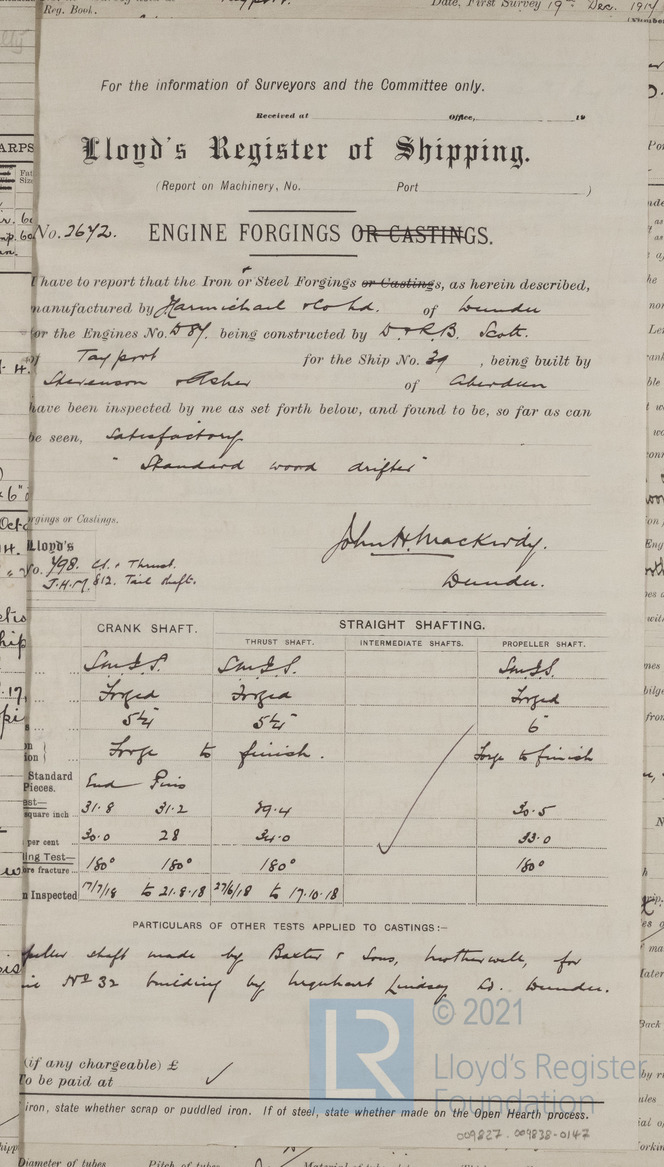 Reg. Book.
Date, First Survey 19th Dec. 1917
For the information of Surveyors and the Committee only.
Received at Office, 19
Lloyd's Register of Shipping.
(Report on Machinery, No. Port )
No. 2642. ENGINE FORGINGS OR CASTINGS.
I have to report that the Iron or Steel Forgings or Castings, as herein described,
manufactured by & Co Ltd. of Dundee
for the Engines No. D 84. being constructed by D. & R. B. Scott.
of Tayport for the Ship No. 39 , being built by
Stevenson & Asher of Aberdeen
have been inspected by me as set forth below, and found to be, so far as can
be seen, Satisfactory
" Standard wood drifter "
rgings or Castings.
Lloyd's
No. 498. Ct. & Thrust.
J.H.M. 812. Tail shaft.
John H. Mackirdy.
Dundee.
CRANK SHAFT. STRAIGHT SHAFTING.
THRUST SHAFT. INTERMEDIATE SHAFTS. PROPELLER SHAFT.
Forged Forged Forged
5¼" 5¼" 6"
Forge to finish. Forge to finish
Standard Pieces. End Pins
31.8 31.2 29.4 30.5
square inch
per cent 30.0 28 34.0 33.0
ing Test— 180° 180° 180° 180°
re fracture
n Inspected 17/7/18 to 21.8.18 27/6/18 to 17.10.18
PARTICULARS OF OTHER TESTS APPLIED TO CASTINGS:—
peller shaft made by Baxter & Sons, Motherwell, for
Nº 32 building by Urquhart Lindsay Co. Dundee.
(if any chargeable) £
To be paid at
iron, state whether scrap or puddled iron. If of steel, state whether made on the Open Hearth process.
LR © 2021
Lloyd's Register
Foundation
009827-009838-0147
Diameter of tubes Pitch of tubes Material of